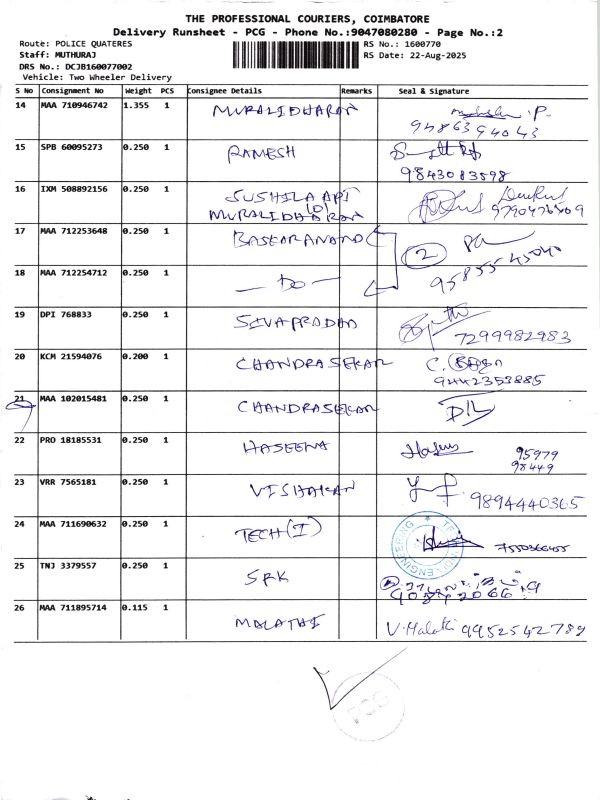 THE PROFESSIONAL COURIERS, COIMBATORE
Delivery Runsheet - PCG - Phone No.:9047080280 - Page No.:2
Route: POLICE QUATERES RS No.: 1600770
Staff: MUTHURAJ RS Date: 22-Aug-2025
DRS No.: DCJB160077002
Vehicle: Two Wheeler Delivery
S No Consignment No Weight PCS Consignee Details Remarks Seal & Signature
14 MAA 710946742 1.355 1 MURALIDHARAN P.
9486394043
15 SPB 60095273 0.250 1 RAMESH
9843083598
16 IXM 508892156 0.250 1 SUSHILA API
(D)
MURALIDHARAN 9790476509
17 MAA 712253648 0.250 1 BASKARANAND 2
18 MAA 712254712 0.250 1 — Do — 9585545040
19 DPI 768833 0.250 1 SIVAPRADHA 7299982983
20 KCM 21594076 0.200 1 CHANDRASEKAR C.
9442353885
21 MAA 102015481 0.250 1 CHANDRASEKAR
22 PRO 18185531 0.250 1 HASEENA 95979
98449
23 VRR 7565181 0.250 1 VISHAKAN 9894440365
24 MAA 711690632 0.250 1 TECH(I) ENGINEERING
25 TNJ 3379557 0.250 1 SRK
26 MAA 711895714 0.115 1 MALATHI V. Malathi 9952542789
PCG